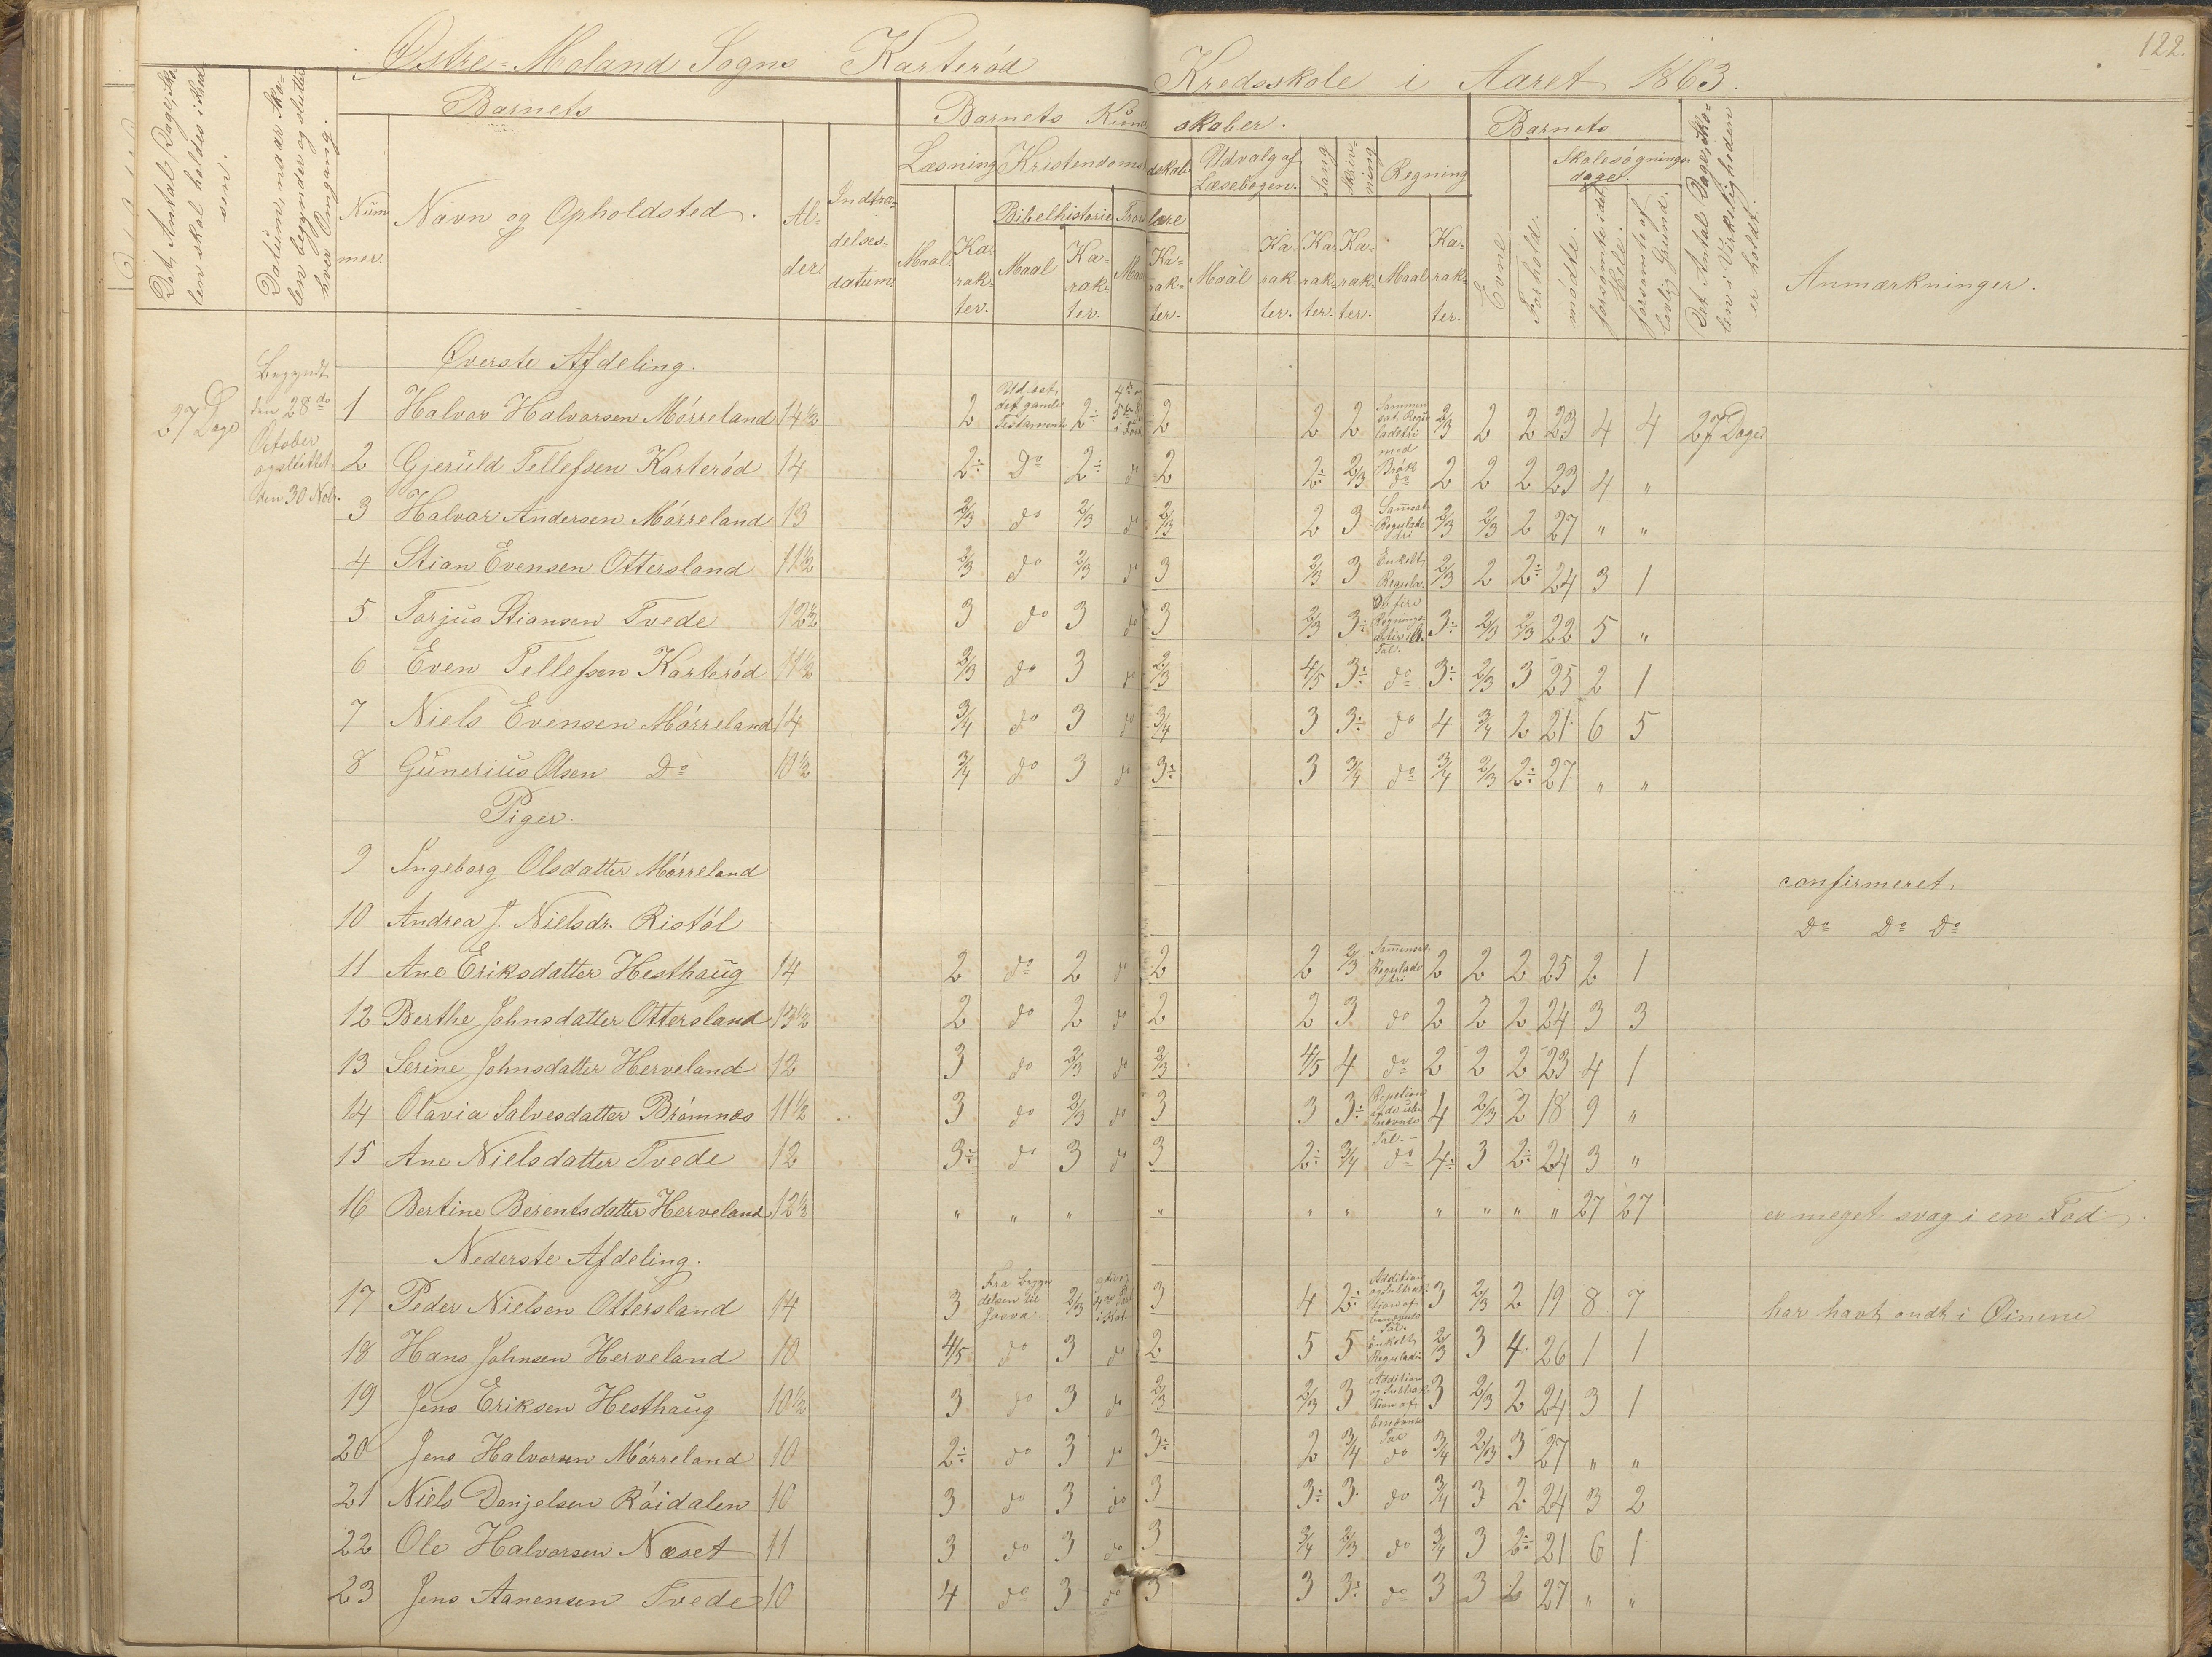 122.
Østre-Moland Sogns Karterød Kredsskole i Aaret 1863.
Det Antal Dage, Skolen skal holdes i Kredsen.
Datum, naar Skolen begynder og slutter hver Omgang.
Barnets
Nummer.
Navn og Opholdsted.
Alder.
Indtrædelsesdatum
Barnets Kundskaber.
Læsning
Maal.
Karakter.
Kristendomskundskab
Bibelhistorie
Maal
Karakter.
Troeslære
Maal
Karakter.
Udvalg af Læsebogen.
Maal
Karakter.
Sang
Karakter.
Skrivning
Karakter.
Regning
Maal
Karakter.
Barnets
Evne
Forhold.
Skolesøgningsdage.
mødte.
forsømte i det Hele.
forsømte af lovlig Grund.
Det Antal Dage, Skolen i Virkeligheden er holdt.
Anmærkninger.
27 Dage
Begyndt den 28de October og sluttet den 30 Nobr.
Øverste Afdeling.
1 Halvor Halvorsen Mørreland 14½ 2 Ud det gamle Testamente 2÷ 2 2 2 Sammensat Reguladetri med Brøk 2/3 2 2 23 4 4 27 Dage
2 Gjeruld Tellefsen Karterød 14 2÷ Do 2÷ do 2 2÷ 2/3 do 2 2 2 23 4 "
3 Halvor Andersen Mørreland 13 2/3 do 2/3 do 2/3 2 3 Sam̄ensat Reguladetri 2/3 2/3 2 27 " "
4 Stian Evensen Ottersland 11½ 2/3 do 2/3 do 3 2/3 3 Enkelt Regula. 2/3 2 2÷ 24 3 1
5 Torjus Stiansen Tvede 12½ 3 do 3 do 3 2/3 3÷ De fire Regningsarter i Tal. 3÷ 2/3 2/3 22 5 "
6 Even Tellefsen Karterød 11½ 2/3 do 3 do 2/3 4/5 3÷ do 3÷ 2/3 3 25 2 1
7 Niels Evensen Mørreland 14 3/4 do 3 do 3/4 3 3÷ do 4 3/4 2 21 6 5
8 Gunerius Olsen Do 13½ 3/4 do 3 do 3÷ 3 3/4 do 3/4 2/3 2÷ 27 " "
Piger.
9 Ingeborg Olsdatter Mørreland confirmeret
10 Andrea J. Nielsdr. Ristøl Do Do Do
11 Ane Eriksdatter Hesthaug 14 2 do 2 do 2 2 2/3 Sam̄ensat Reguladetri 2 2 2 25 2 1
12 Berthe Johnsdatter Ottersland 13½ 2 do 2 do 2 2 3 do 2 2 2 24 3 3
13 Serine Johnsdatter Herveland 12 3 do 2/3 do 2/3 4/5 4 do 2 2 2 23 4 1
14 Olavia Salvesdatter Brømnes 11½ 3 do 2/3 do 3 3 3÷ Repetion af de ubenævnte Tal. 4 2/3 2 18 9 "
15 Ane Nielsdatter Tvede 12 3÷ do 3 do 3 2÷ 3/4 do 4÷ 3 2÷ 24 3 "
16 Bertine Berentsdatter Herveland 12½ " " " " " " " " " " 27 27 er meget svag i en Fod.
Nederste Afdeling.
17 Peder Nielsen Ottersland 14 3 Fra Begyndelsen til Josva 2/3 3 4 2÷ Addition og Subtraktion af benævnte Tal. 3 2/3 2 19 8 7 har havt ondt i Øinene
18 Hans Johnsen Herveland 10 4/5 do 3 do 2 5 5 Enkelt Reguladi 2/3 3 4 26 1 1
19 Jens Eriksen Hesthaug 10½ 3 do 3 do 2/3 2/3 3 Addition og Subtraktion af benævnte Tal 3 2/3 2 24 3 1
20 Jens Halvorsen Mørreland 10 2÷ do 3 do 3÷ 2 3/4 do 3/4 2/3 3 27 " "
21 Niels Danjelsen Røidalen 10 3 do 3 do 3 3÷ 3 do 3/4 3 2 24 3 2
22 Ole Halvorsen Næset 11 3 do 3 do 3 3/4 2/3 do 3/4 3 2÷ 21 6 1
23 Jens Aanensen Tvede 10 4 do 3 do 3 3 3÷ do 3 3 2 27 " "